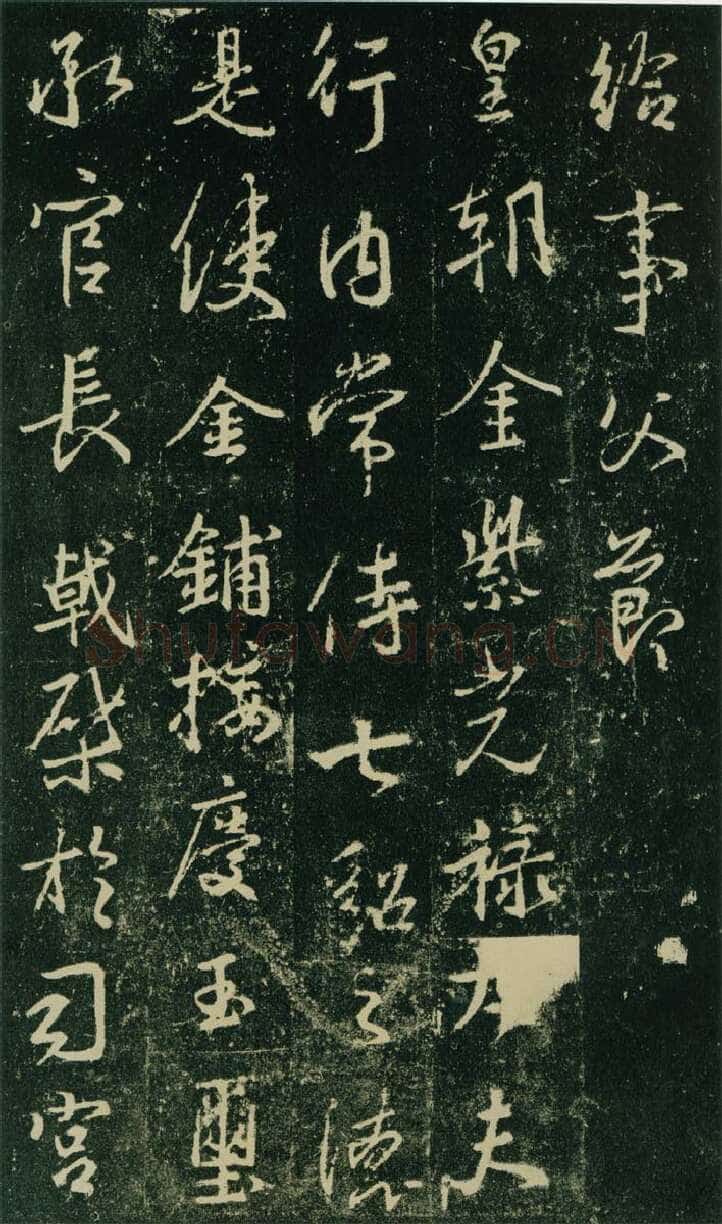 給事父節
皇朝金紫光祿大夫
行內常侍七貂之德
是使金鋪接慶玉璽
承官長戟棨於司宮
Shufawang.CN